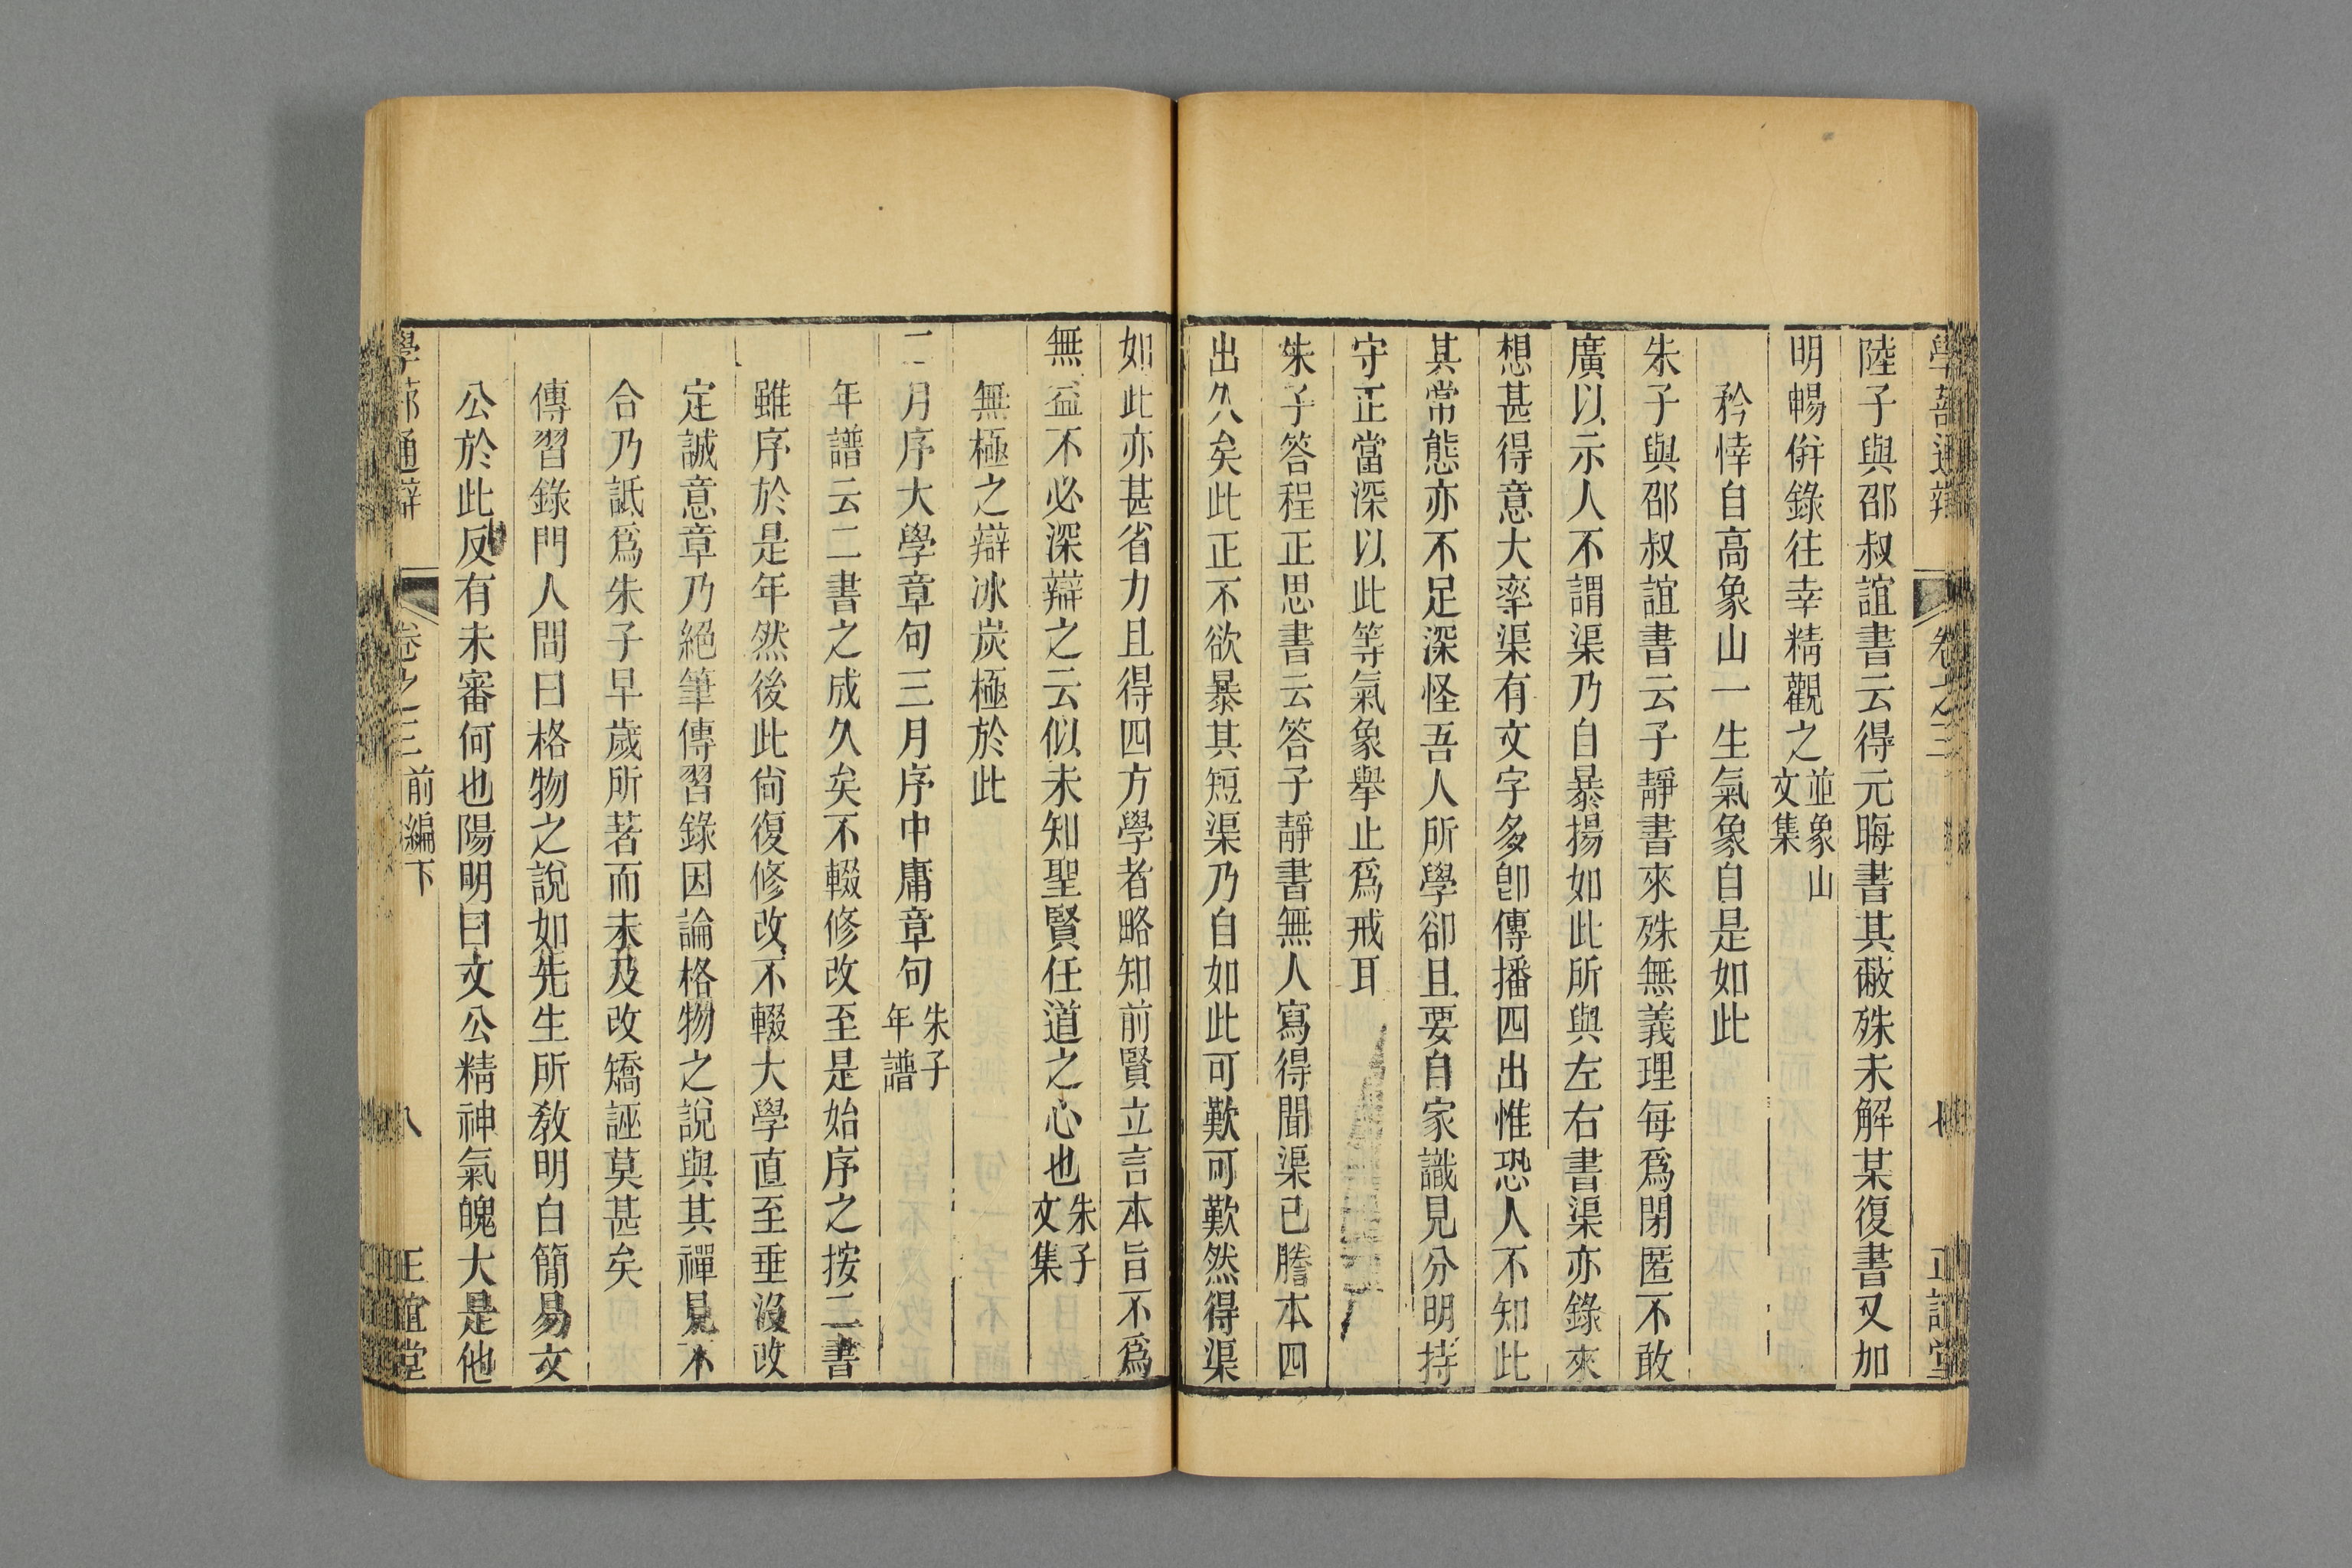 學蔀通辯 卷之三 七 正誼堂
陸子與邵叔誼書云得元晦書其蔽殊未解某復書又加
明暢倂錄往幸精觀之並象山文集
矜悻自高象山一生氣象自是如此
朱子與邵叔誼書云子靜書來殊無義理每爲閉匿不敢
廣以示人不謂渠乃自暴揚如此所與左右書渠亦錄來
想甚得意大率渠有文字多卽傳播四出惟恐人不知此
其常態亦不足深怪吾人所學卻且要自家識見分明持
守正當深以此等氣象舉止爲戒耳
朱子答程正思書云答子靜書無人寫得聞渠已謄本四
出久矣此正不欲暴其短渠乃自如此可歎可歎然得渠
如此亦甚省力且得四方學者略知前賢立言本旨不爲
無益不必深辯之云似未知聖賢任道之心也朱子文集
無極之辯冰炭極於此
二月序大學章句三月序中庸章句朱子年譜
年譜云二書之成久矣不輟修改至是始序之按二書
雖序於是年然後此尙復修改不輟大學直至垂沒改
定誠意章乃絕筆傳習錄因論格物之說與其禪見不
合乃詆爲朱子早歲所著而未及改矯誣莫甚矣
傳習錄門人問曰格物之說如先生所敎明白簡易文
公於此反有未審何也陽明曰文公精神氣魄大是他
學蔀通辯 卷之三 前編下 八 正誼堂